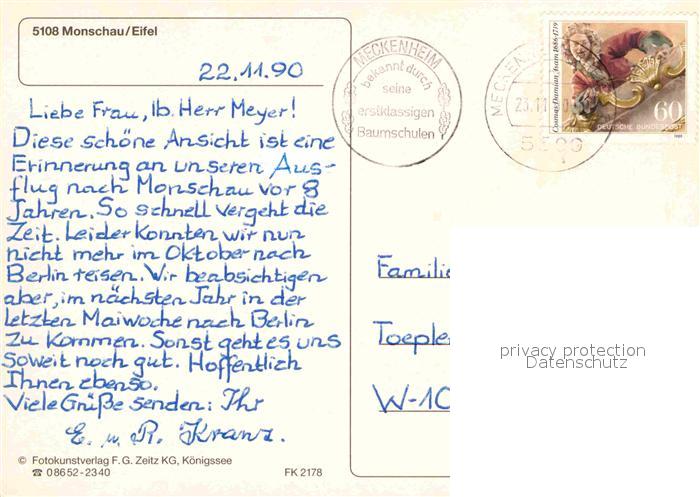 5108 Monschau/Eifel
22.11.90
Liebe Frau, lb. Herr Meyer!
Diese schöne Ansicht ist eine
Erinnerung an unseren Aus-
flug nach Monschau vor 8
Jahren. So schnell vergeht die
Zeit. Leider konnten wir nun
nicht mehr im Oktober nach
Berlin reisen. Wir beabsichtigen
aber, im nächsten Jahr in der
letzten Maiwoche nach Berlin
zu kommen. Sonst geht es uns
soweit noch gut. Hoffentlich
Ihnen ebenso.
Viele Grüße senden: Ihr
E. u. R. Kranz.
© Fotokunstverlag F. G. Zeitz KG, Königssee
☎ 08652-2340
FK 2178
MECKENHEIM
bekannt durch
seine
erstklassigen
Baumschulen
23.11
Cosmas Damian Asam 1686-1739
60
DEUTSCHE BUNDESPOST
Familie
Toepler
W-10
privacy protection
Datenschutz